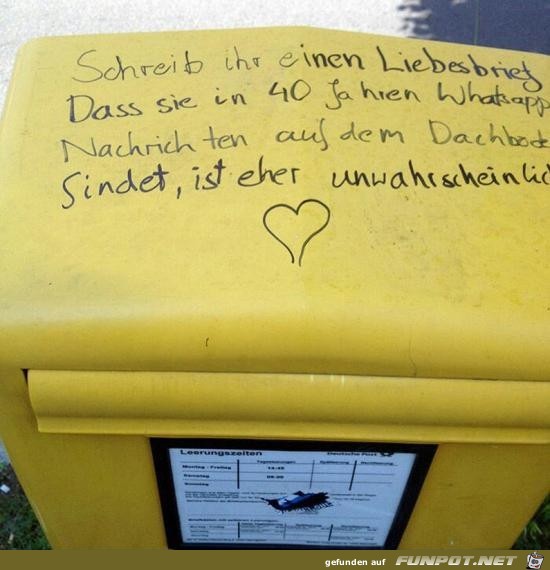 Schreib ihr einen Liebesbrief
Dass sie in 40 Jahren Whatsapp
Nachrichten auf dem Dachbode
findet, ist eher unwahrscheinlic
Leerungszeiten
Deutsche Post
Montag - Freitag 14:45
Samstag
Sonntag
gefunden auf FUNPOT.NET